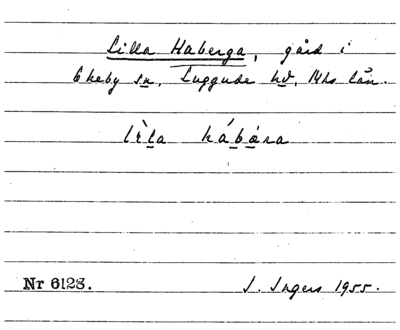 Lilla Haberga, gård i
Ekeby sn, Luggude hd, Mhs län.
lìla hábæra
Nr 6128.
I. Ingers 1955.